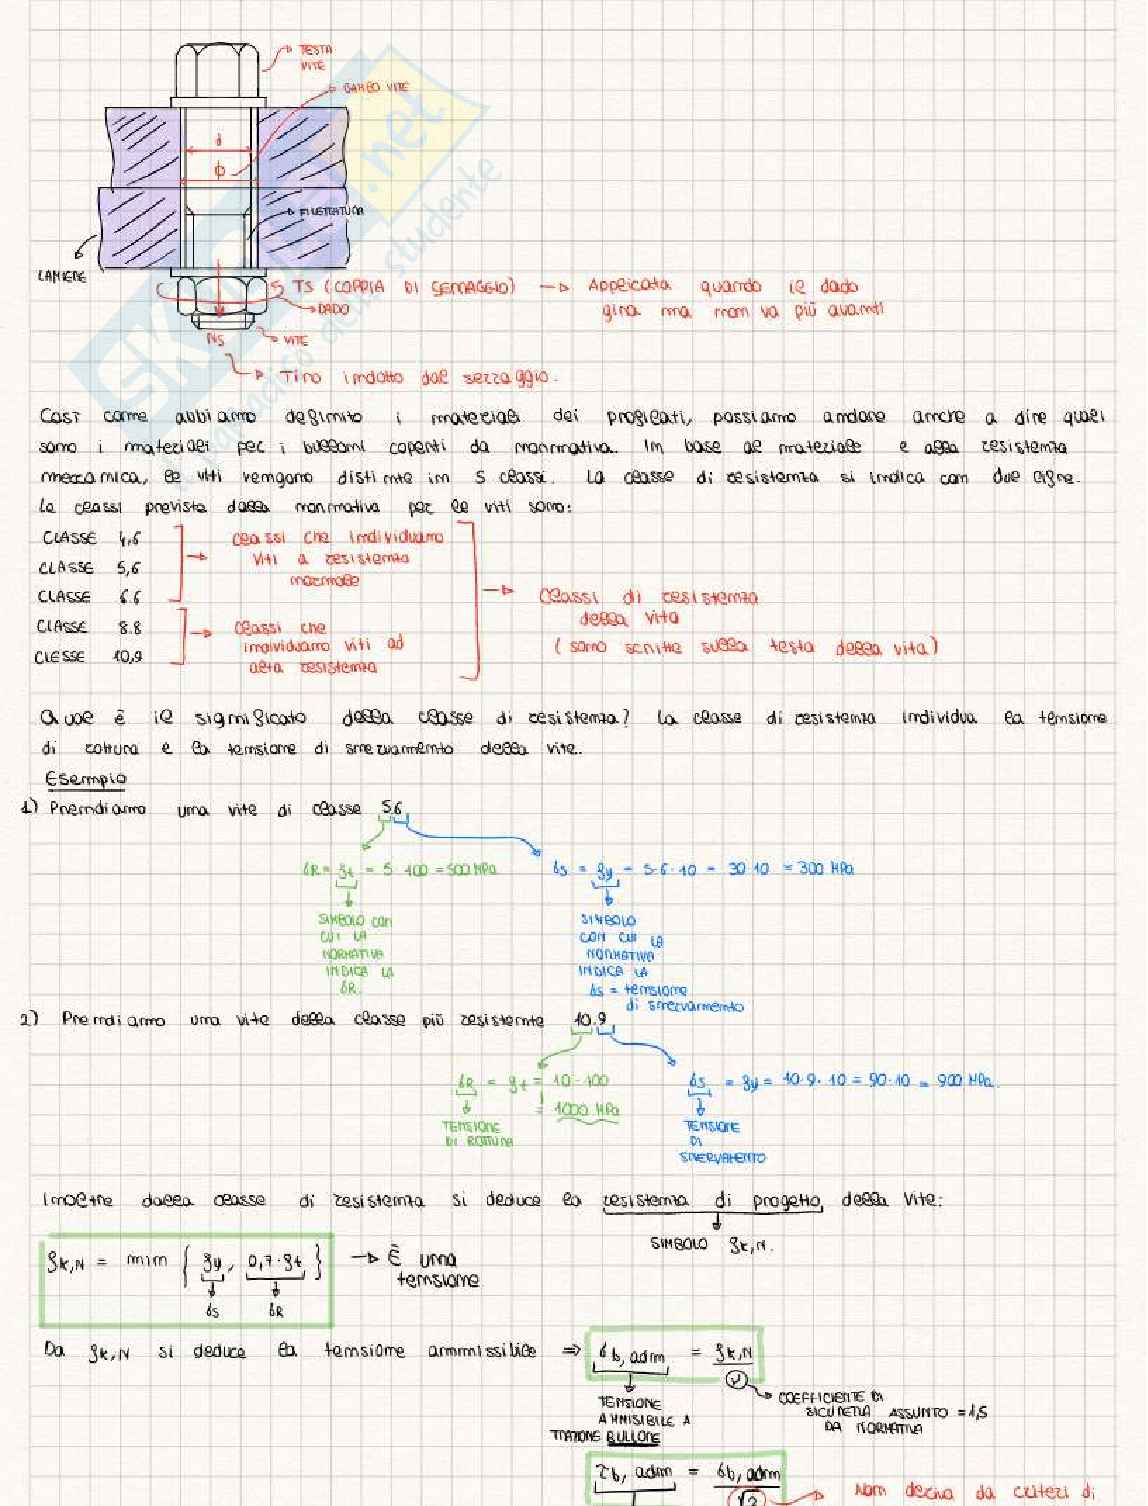 TESTA
VITE
GAMBO VITE
d
ϕ
FILETTATURA
LAMIERE
TS (COPPIA DI SERRAGGIO) → Applicata quando le dado
gira ma non va più avanti
DADO
NS
VITE
→ Tiro indotto dal serraggio.
Così come abbiamo definito i materiali dei profilati, possiamo andare anche a dire quali
sono i materiali per i bulloni coperti da normativa. In base al materiale e alla resistenza
meccanica, le viti vengono distinte in 5 classi. La classe di resistenza si indica con due cifre.
Le classi previste dalla normativa per le viti sono:
CLASSE 4,6
CLASSE 5,6
CLASSE 6.6
CLASSE 8.8
CLESSE 10,9
→ classi che individuano
viti a resistenza
normale
→ classi che
individuano viti ad
alta resistenza
→ Classi di resistenza
della vita
(sono scritte sulla testa della vita)
Quale è il significato della classe di resistenza? La classe di resistenza individua la tensione
di rottura e la tensione di snervamento della vite.
Esempio
1) Prendiamo una vite di classe 5.6
σR = ft = 5·100 = 500 MPa
σs = fy = 5·6·10 = 30·10 = 300 MPa
SIMBOLO con
CUI LA
NORMATIVA
INDICA LA
σR
SIMBOLO
CON CUI LA
NORMATIVA
INDICA LA
σs = tensione
di snervamento
2) Prendiamo una vite della classe più resistente 10.9
σR = ft = 10·100
= 1000 MPa
σs = fy = 10·9·10 = 90·10 = 900 MPa.
TENSIONE
DI ROTTURA
TENSIONE
DI
SNERVAMENTO
Inoltre dalla classe di resistenza si deduce la resistenza di progetto della vite:
SIMBOLO fk,N.
fk,N = min { fy, 0,7·ft } → È una
tensione
σs σR
Da fk,N si deduce la tensione ammissibile ⇒ σb,adm = fk,N
ν
COEFFICIENTE DI
SICUREZZA ASSUNTO = 1,5
DA NORMATIVA
TENSIONE
AMMISIBILE A
TRAZIONE BULLONE
τb,adm = σb,adm
√3
Non deriva da criteri di